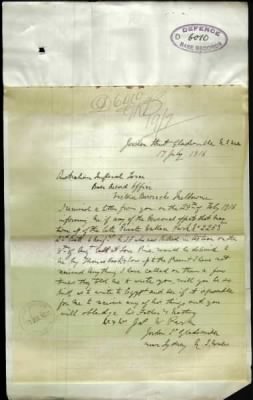 DEFENCE
D 6010
BASE RECORDS
Jordan Street Gladesville N. S. W
17 July 1916
Australian Imperial Force
Base Record Office
Victoria Barracks Melbourne
I received a letter from you on the 24th of Feby 1916
informing me if any of the Personal effects that may
turn up of the late Private William Park No 2253
who was killed in action on the
at Lone Pine would be delivered to
me by Thomas Cook & Son up to the Present I have not
received anything I have called on them a few
times they told me to write you will you be so
kind as to write to Egypt and see if it is possible
for me to receive any of his things and you
will oblige his Father & Mother
Mr & W Jas W Park
Jordan St Gladesville
near Sydney N. S Wales